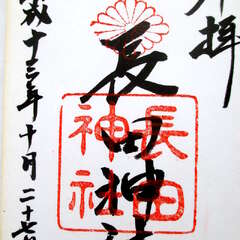 奉拝
長田神社
長田
神社
平成十三年十月二十七